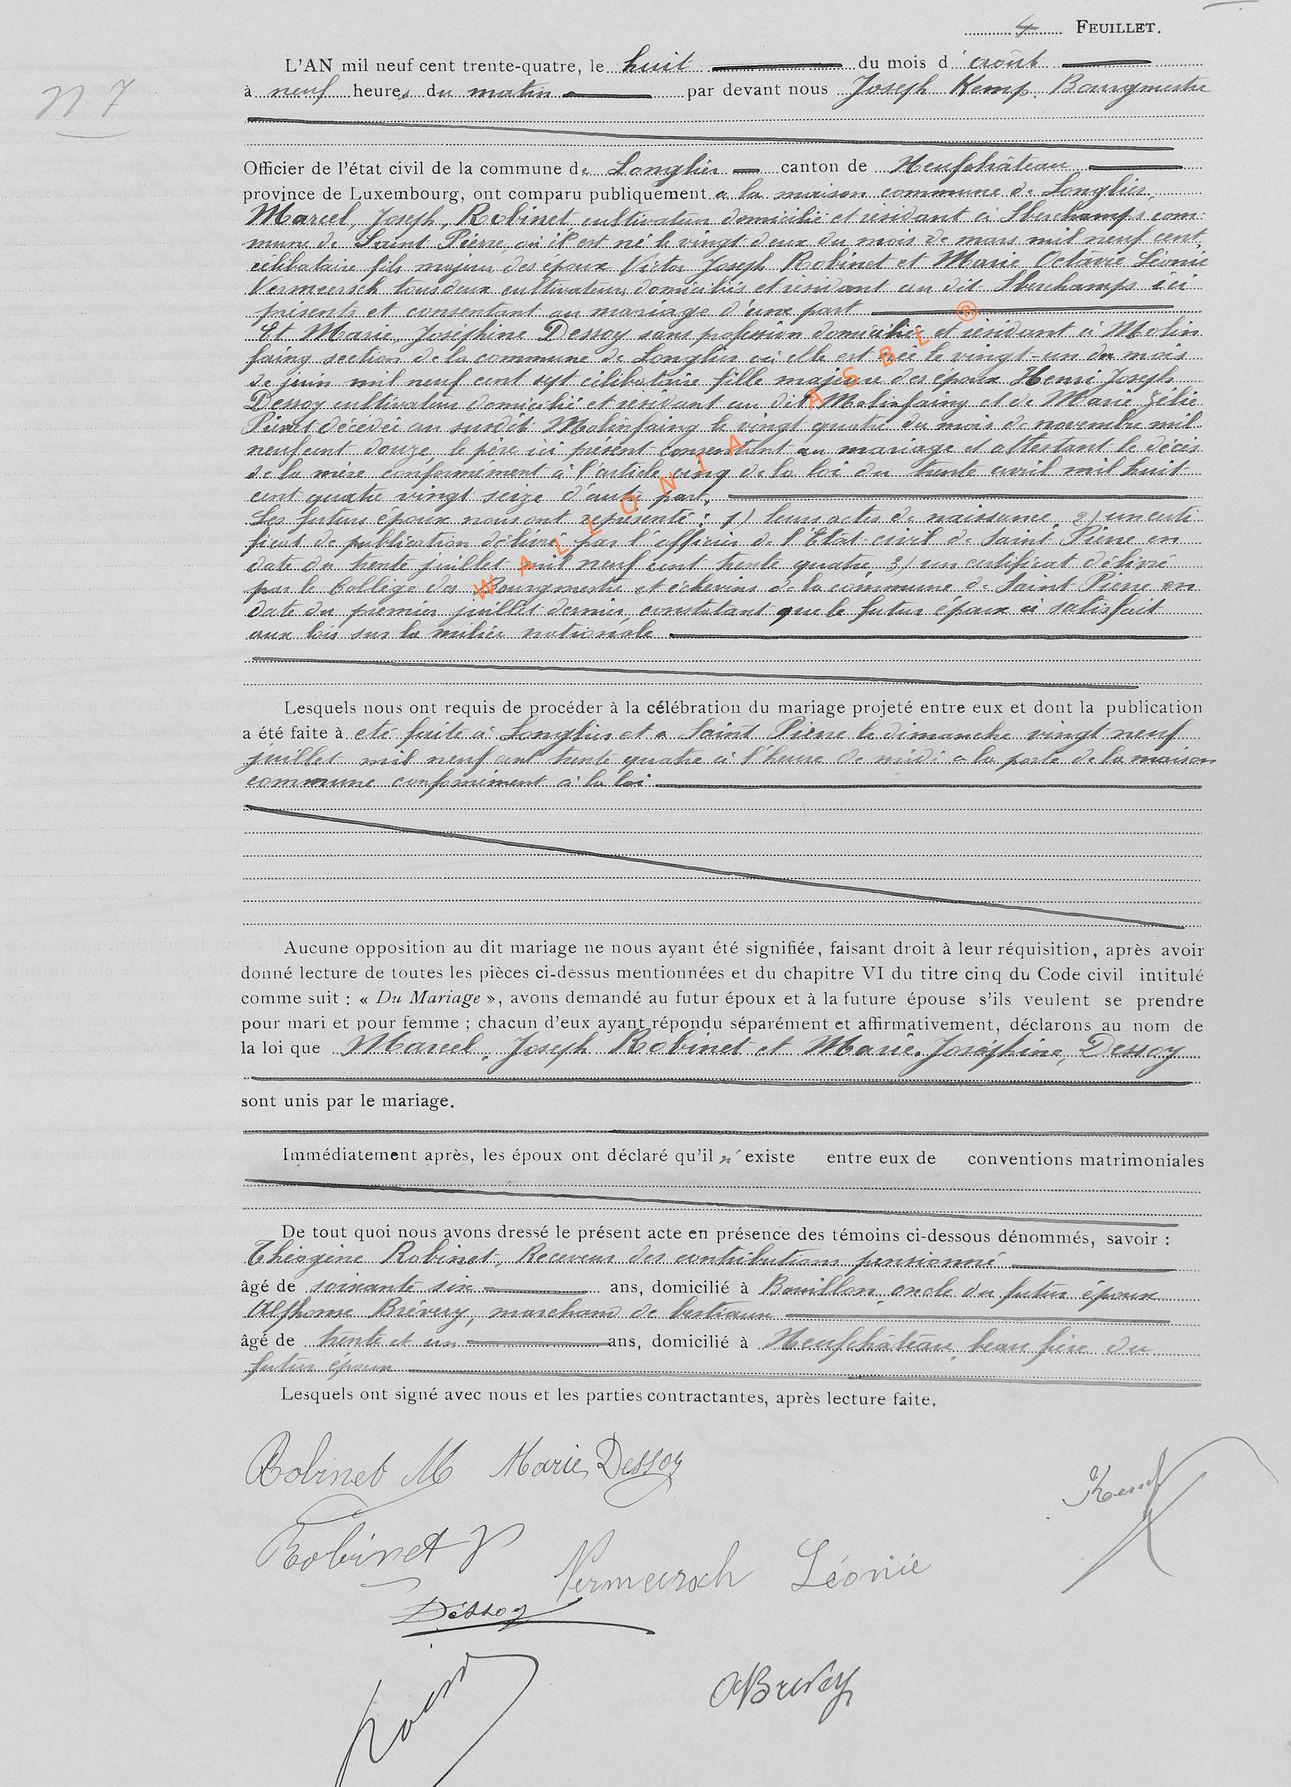 4 FEUILLET.
N 7
L'AN mil neuf cent trente-quatre, le huit du mois d'août
à neuf heures du matin par devant nous Joseph Kemp, Bourgmestre
Officier de l'état civil de la commune de Longlier canton de Neufchâteau
province de Luxembourg, ont comparu publiquement a la maison commune de Longlier,
Marcel, Joseph, Robinet cultivateur domicilié et résidant à Sberchamps com-
mune de Saint Pierre, où il est né le vingt deux du mois de mars mil neuf cent,
célibataire fils majeur des époux Victor Joseph Robinet et Marie Octavie Léonie
Vermeersch tous deux cultivateurs domiciliés et résidant au dit Sberchamps ici
présents et consentant au mariage d'une part
Et Marie, Joséphine Dessoy sans profession domiciliée et résidant à Molin
faing section de la commune de Longlier où elle est née le vingt-un du mois
de juin mil neuf cent sept célibataire fille majeure des époux Henri Joseph
Dessoy cultivateur domicilié et résidant au dit Molinfaing et de Marie Zélie
décédée au susdit Molinfaing le vingt quatre du mois de novembre mil
neuf cent douze, le père ici présent consentant au mariage et attestant le décès
de la mère conformément à l'article cinq de la loi du trente avril mil huit
cent quatre vingt seize d'autre part.
Les futurs époux nous ont représenté : 1) leurs actes de naissance 2) un certi
ficat de publication délivré par l'officier de l'Etat-civil de Saint Pierre en
date du trente juillet mil neuf cent trente quatre, 3) un certificat délivré
par le Collège des Bourgmestre et échevins de la commune de Saint Pierre en
date du premier juillet dernier constatant que le futur époux a satisfait
aux lois sur la milice nationale
WALLONIA ASBL ®
Lesquels nous ont requis de procéder à la célébration du mariage projeté entre eux et dont la publication
a été faite à été faite à Longlier et a Saint Pierre le dimanche vingt neuf
juillet mil neuf cent trente quatre à l'heure de midi a la porte de la maison
commune conformément à la loi
Aucune opposition au dit mariage ne nous ayant été signifiée, faisant droit à leur réquisition, après avoir
donné lecture de toutes les pièces ci-dessus mentionnées et du chapitre VI du titre cinq du Code civil intitulé
comme suit : « Du Mariage », avons demandé au futur époux et à la future épouse s'ils veulent se prendre
pour mari et pour femme ; chacun d'eux ayant répondu séparément et affirmativement, déclarons au nom de
la loi que Marcel, Joseph Robinet et Marie, Joséphine, Dessoy
sont unis par le mariage.
Immédiatement après, les époux ont déclaré qu'il n'existe entre eux de conventions matrimoniales
De tout quoi nous avons dressé le présent acte en présence des témoins ci-dessous dénommés, savoir :
Théogène Robinet, Receveur des contributions pensionné
âgé de soixante six ans, domicilié à Bouillon, oncle du futur époux
Alphonse Brévery, marchand de bestiaux
âgé de trente et un ans, domicilié à Neufchâteau, beau frère du
futur époux
Lesquels ont signé avec nous et les parties contractantes, après lecture faite.
Robinet M Marie Dessoy
Kemp
Robinet V
Vermeersch Léonie
Dessoy
ABrevery